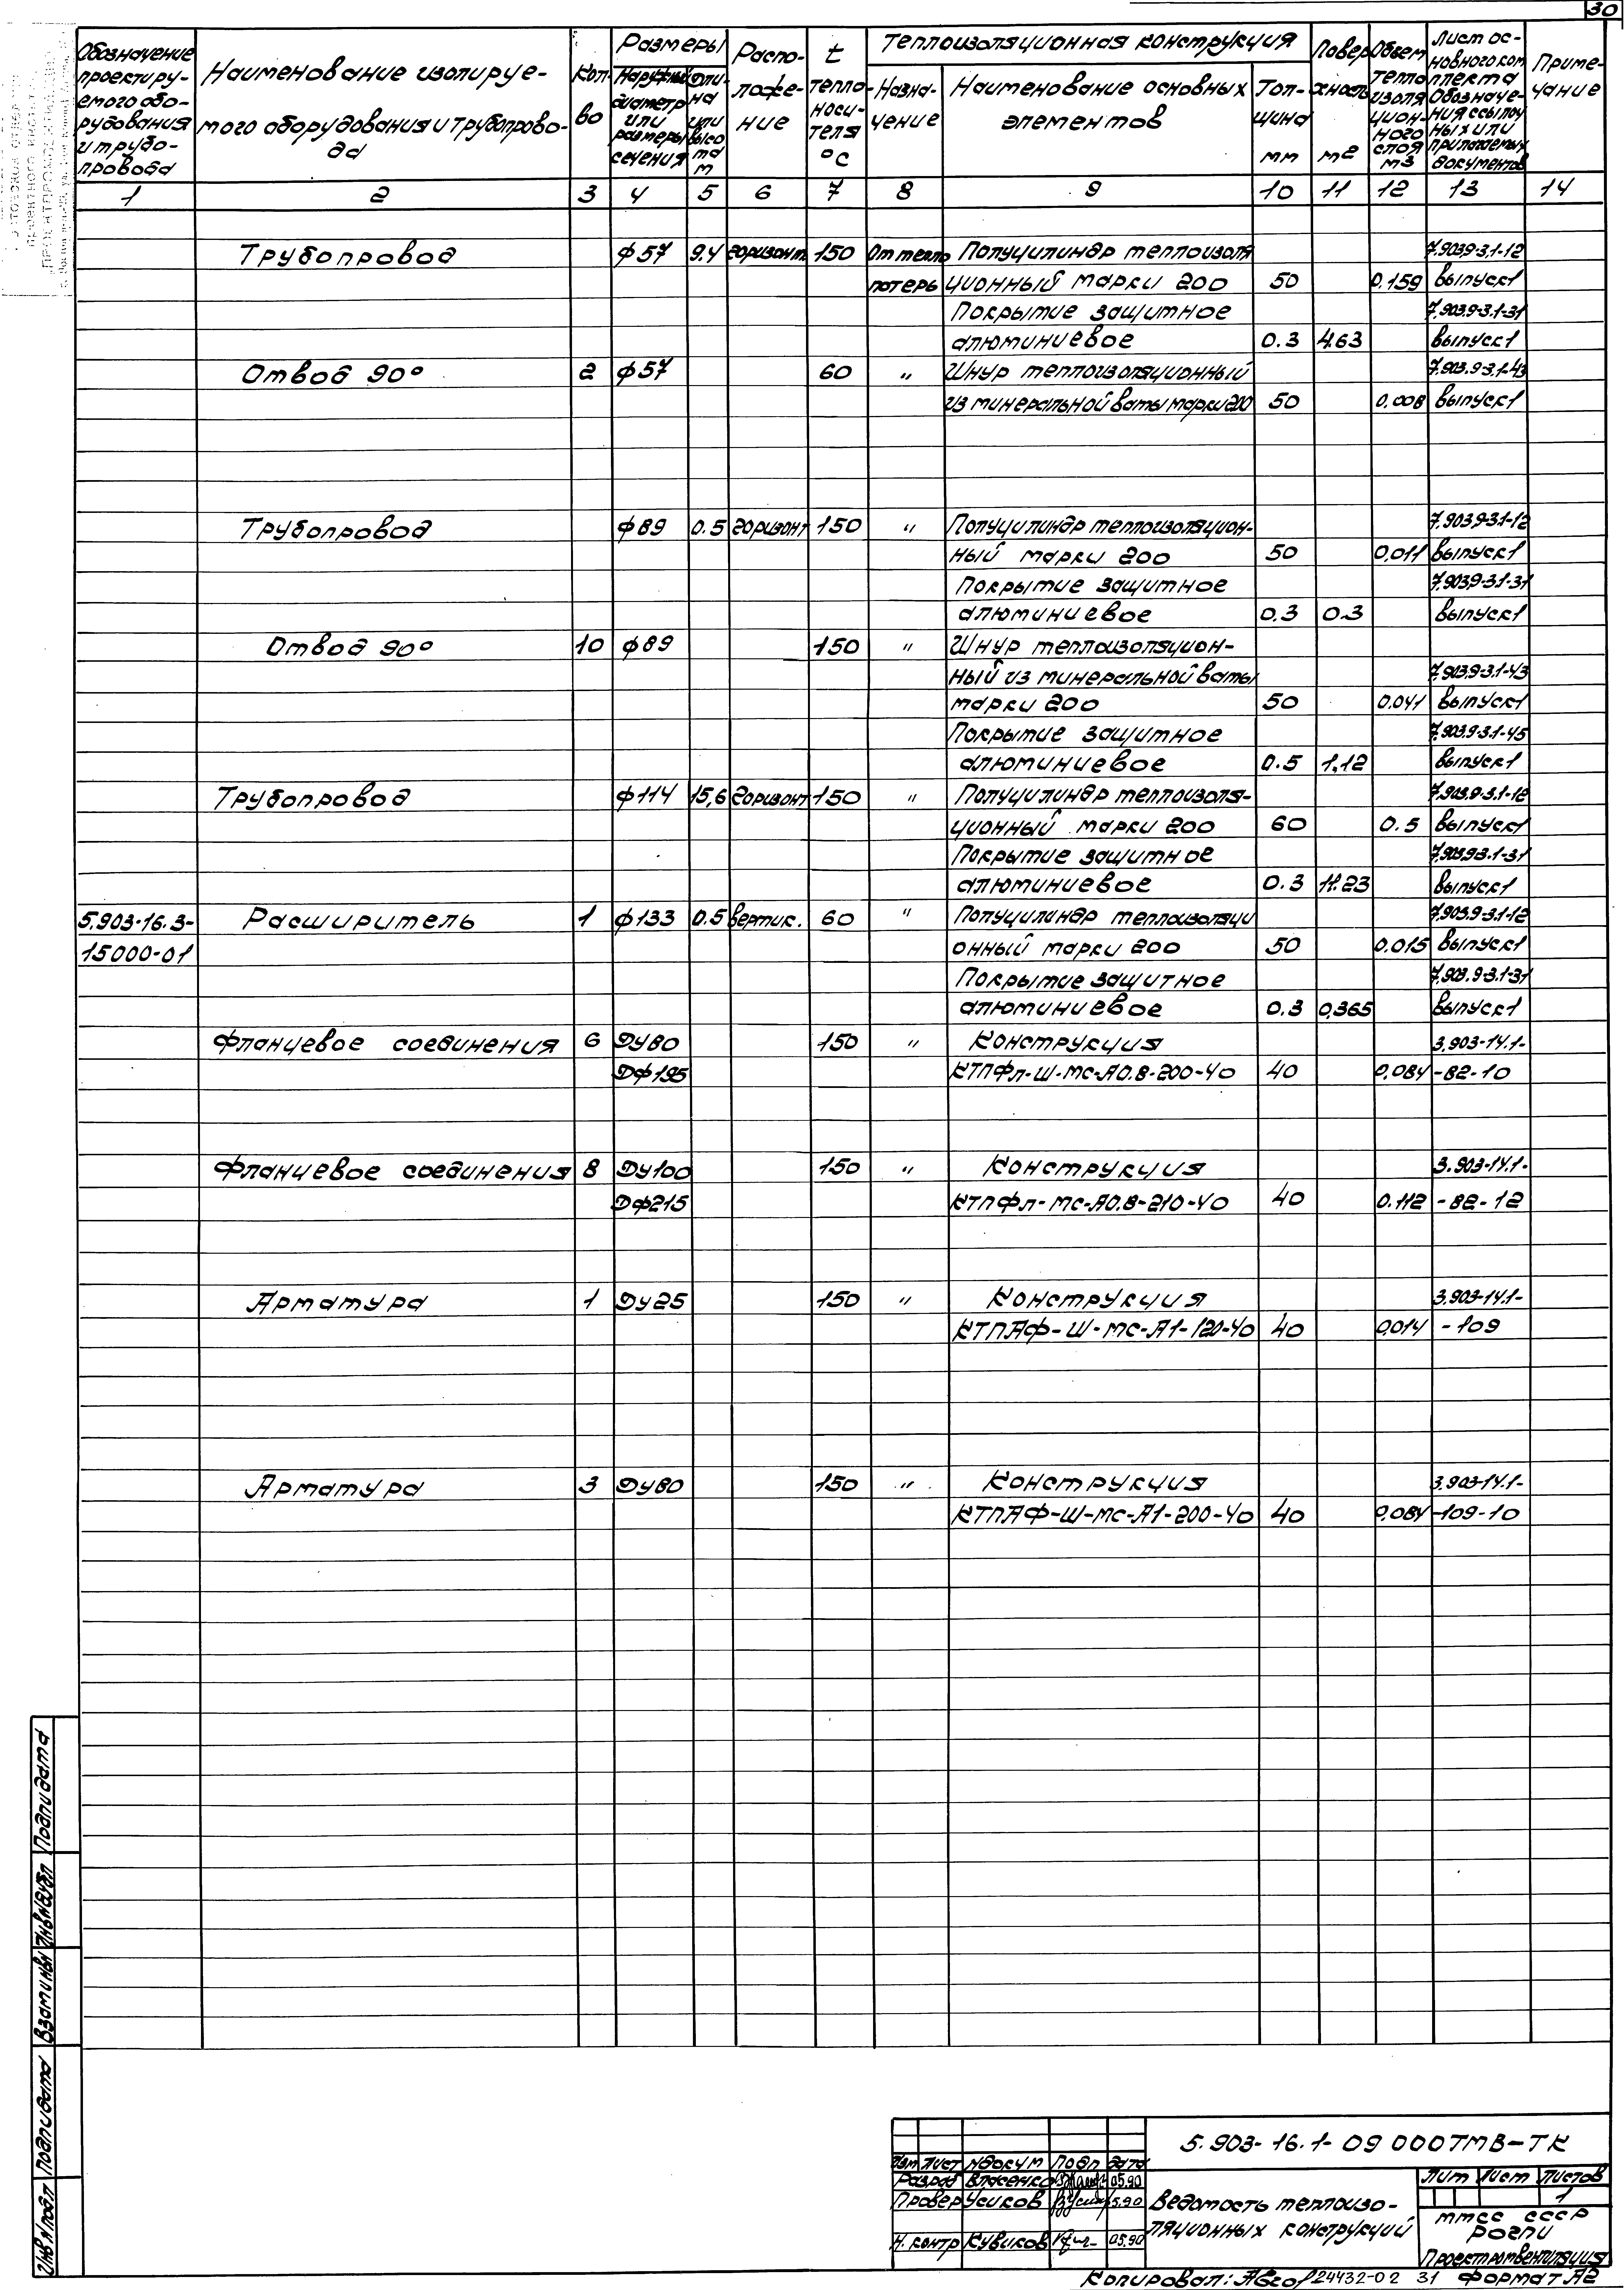 30
Обозначение проектируемого оборудования и трубопровода
Наименование изолируемого оборудования и трубопровода
Кол-во
Размеры
Наружный диаметр или размеры сечения
или высота м
Располо-жение
t теплоносителя °С
Теплоизоляционная конструкция
Назна-чение
Наименование основных элементов
Тол-щина мм
Поверхность м2
Объем теплоизоляционного слоя м3
Лист основного комплекта Обозначения ссылочных или прилагаемых документов
Приме-чание
1 2 3 4 5 6 7 8 9 10 11 12 13 14
Трубопровод ф57 9.4 горизонт. 150 От тепло Полуцилиндр теплоизоля 7.903.9-3.1-12
потерь ционный марки 200 50 0.159 выпуск1
Покрытие защитное 7.903.9-3.1-31
алюминиевое 0.3 4.63 выпуск1
Отвод 90° 2 ф57 60 " Шнур теплоизоляционный 7.903.9-3.1-43
из минеральной ваты марки 200 50 0.008 выпуск1
Трубопровод ф89 0.5 горизонт 150 " Полуцилиндр теплоизоляцион- 7.903.9-3.1-12
ный марки 200 50 0.011 выпуск1
Покрытие защитное 7.903.9-3.1-31
алюминиевое 0.3 0.3 выпуск1
Отвод 90° 10 ф89 150 " Шнур теплоизоляцион-
ный из минеральной ваты 7.903.9-3.1-43
марки 200 50 0.041 выпуск1
Покрытие защитное 7.903.9-3.1-45
алюминиевое 0.5 1,12 выпуск1
Трубопровод ф114 15,6 горизонт 150 " Полуцилиндр теплоизоля- 7.903.9-3.1-12
ционный марки 200 60 0.5 выпуск1
Покрытие защитное 7.903.9-3.1-31
алюминиевое 0.3 11.23 выпуск1
5.903-16.3- Расширитель 1 ф133 0.5 вертик. 60 " Полуцилиндр теплоизоляци 7.903.9-3.1-12
15000-01 онный марки 200 50 0.015 выпуск1
Покрытие защитное 7.903.9-3.1-31
алюминиевое 0.3 0,365 выпуск1
Фланцевое соединения 6 Ду80 150 " Конструкция 3.903-14.1-
Дф195 КТПФл-Ш-МС-А0.8-200-40 40 0,084 -82-10
Фланцевое соединения 8 Ду100 150 " Конструкция 3.903-14.1-
Дф215 КТПФл-МС-А0.8-210-40 40 0.112 -82-12
Арматура 1 Ду25 150 " Конструкция 3.903-14.1-
КТПАФ-Ш-МС-А1-120-40 40 0,014 -109
Арматура 3 Ду80 150 " Конструкция 3.903-14.1-
КТПАФ-Ш-МС-А1-200-40 40 0,084 -109-10
Подп и дата
Инв № дубл
Взам инв №
Подп и дата
Инв № подл
5.903-16.1-09 000ТМВ-ТК
Изм Лист № докум Подп Дата
Разраб Власенко 05.90
Провер Усиков 5.90
Н. контр Кувиков 05.90
Ведомость теплоизо-
ляционных конструкций
Лит Лист Листов
1
ММСС СССР
РОГПИ
Проектпромвентиляция
Копировал: 24432-02 31 Формат А2